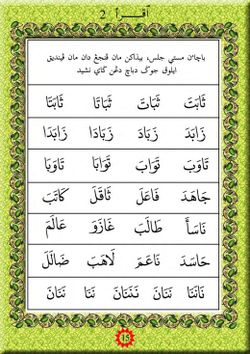 اقرأ 2
باچاءن مستي جلس، بيذاکن مان ڤنجڠ دان مان ڤينديق
ايلوق جوݢ دباچ دڠن ݢاي نشيد
ثَابَتَ ثَبَاتَ ثَبَاتَا ثَابَتَا
زَابَدَ زَبَادَ زَبَادَا زَابَدَا
تَاوَبَ تَوَابَ تَوَابَا تَاوَبَا
جَاهَدَ فَاعَلَ ثَاقَلَ كَاتَبَ
نَاسَأَ طَالَبَ غَازَوَ عَالَمَ
حَاسَدَ نَاعَمَ لَاهَبَ ضَالَلَ
15